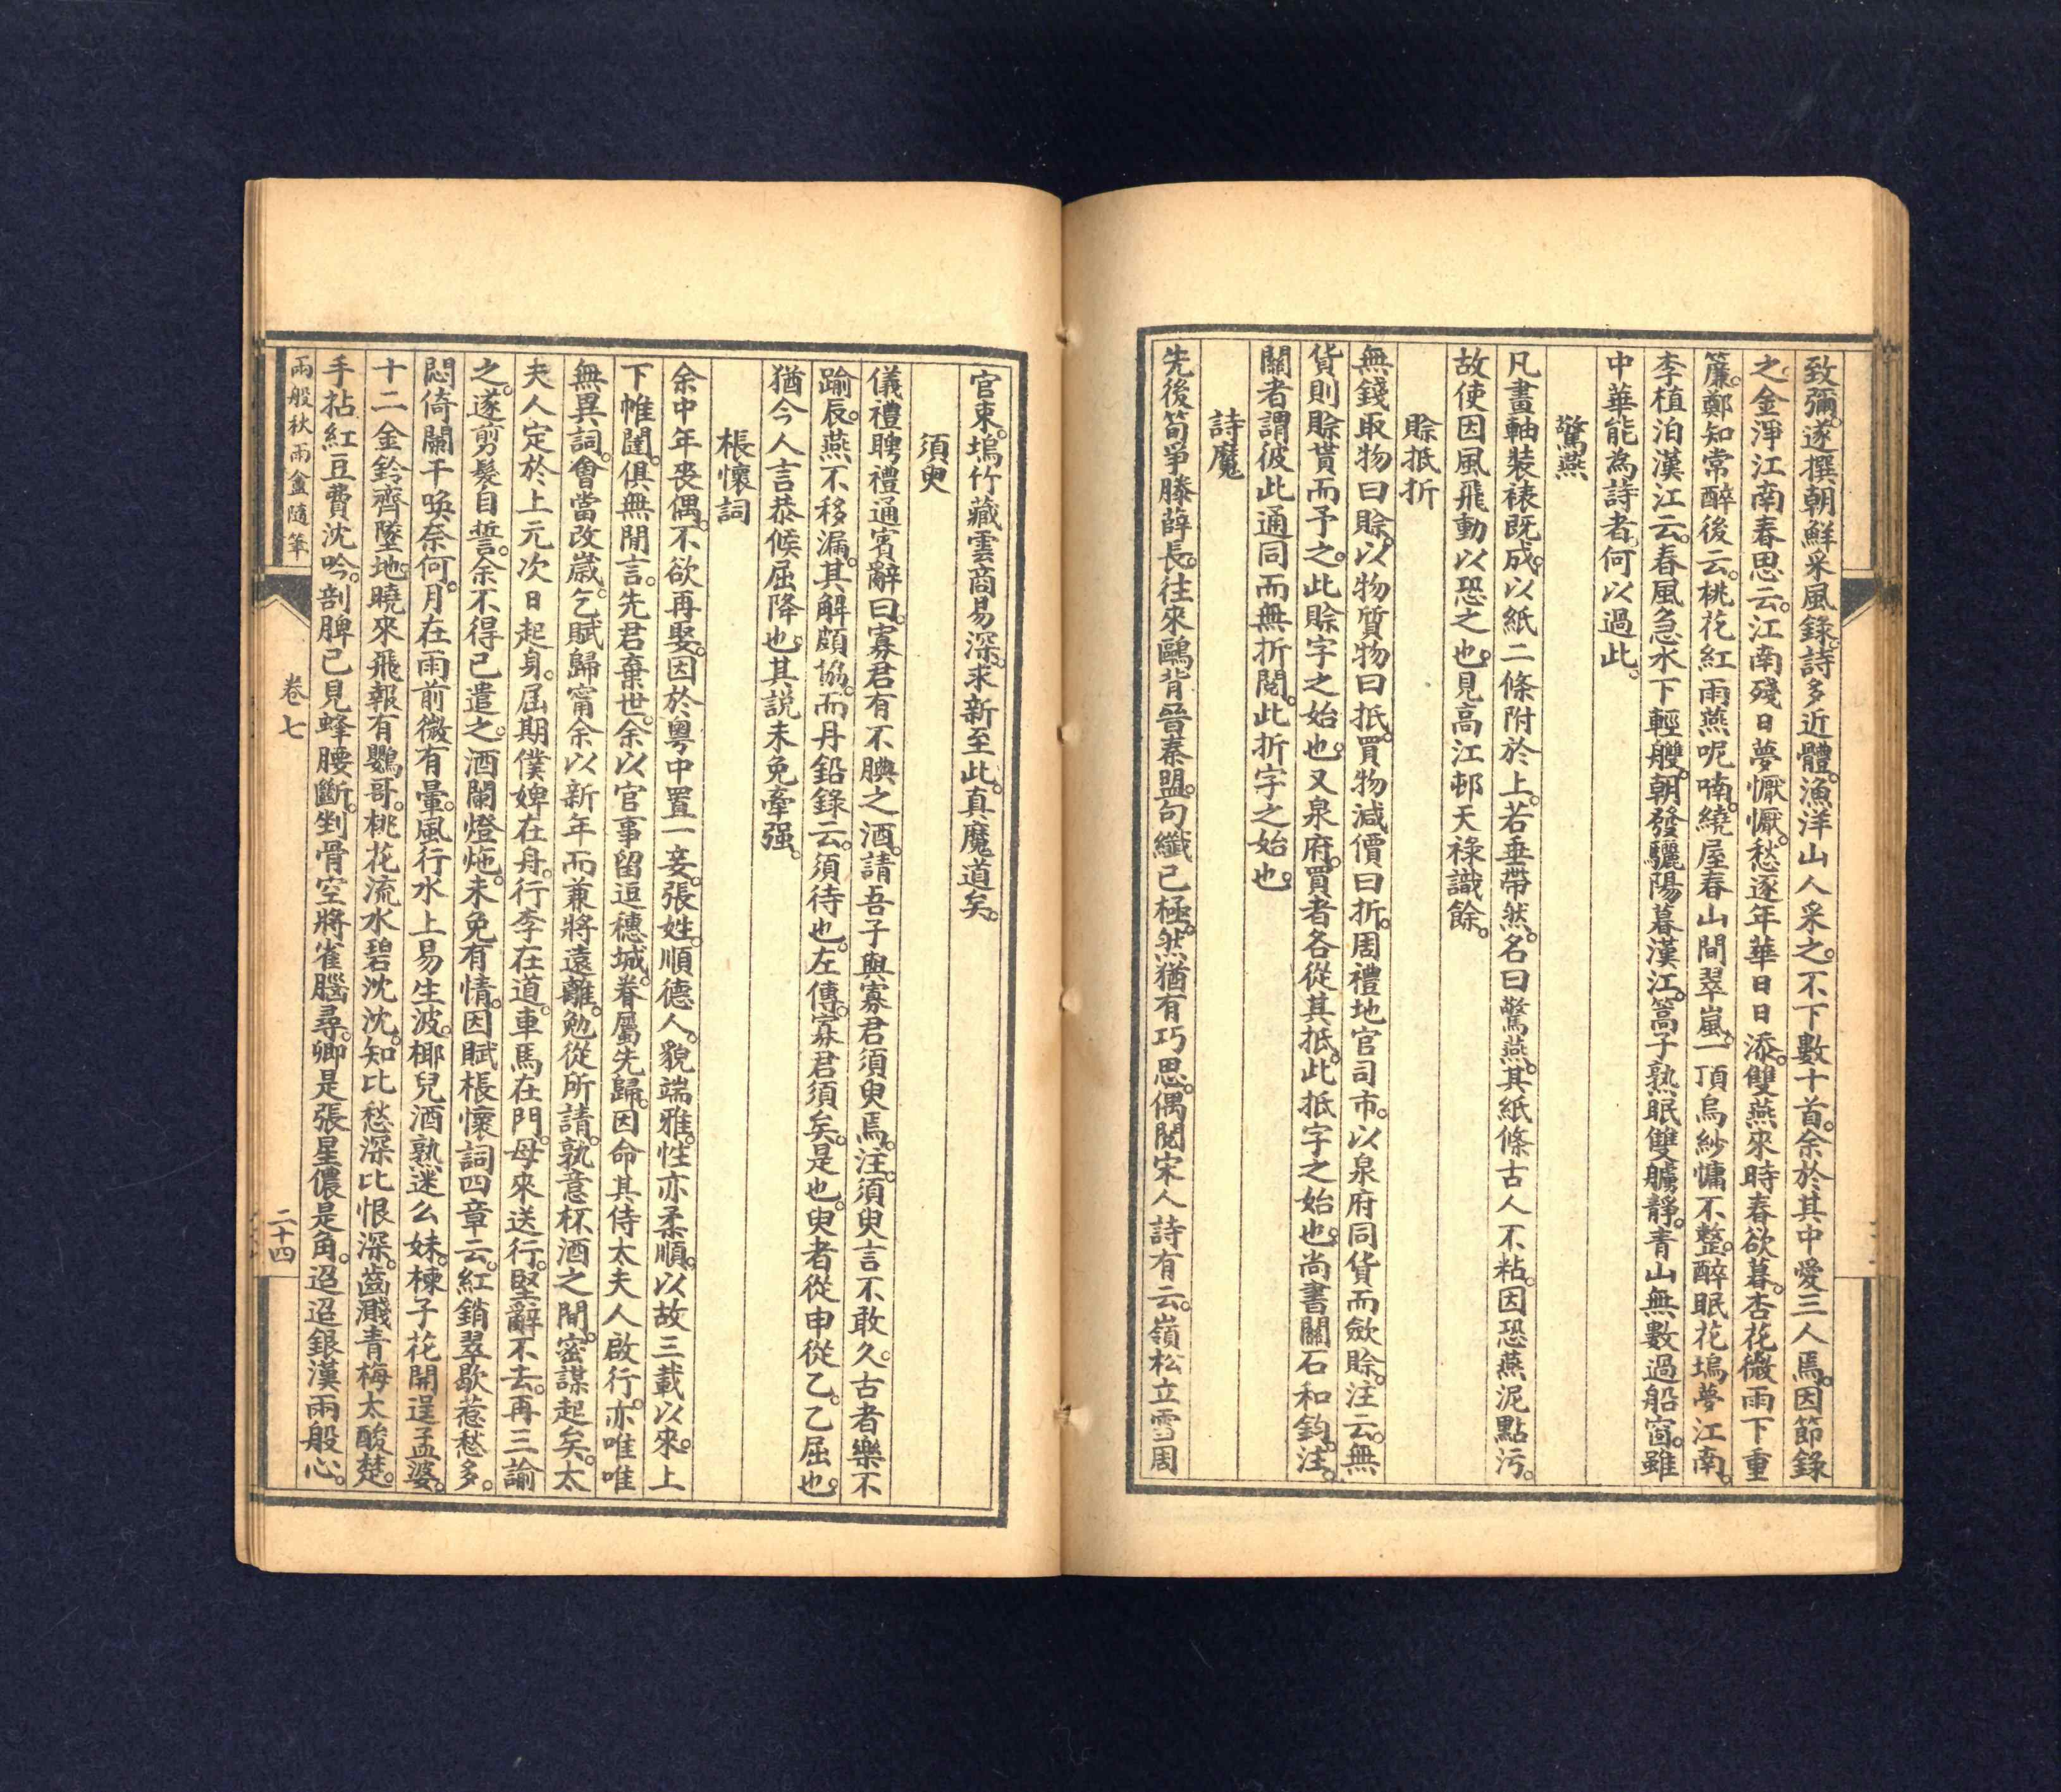 致彌。遂撰朝鮮采風錄。詩多近體。漁洋山人采之。不下數十首。余於其中愛三人焉。因節錄
之。金淨江南春思云。江南殘日夢懨懨。愁逐年華日日添。雙燕來時春欲暮。杏花微雨下重
簾。鄭知常醉後云。桃花紅雨燕呢喃。繞屋春山間翠嵐。一頂烏紗慵不整。醉眠花塢夢江南。
李植泊漢江云。春風急水下輕艭。朝發驪陽暮漢江。篙子熟眠雙艣靜。青山無數過船窗。雖
中華能為詩者。何以過此。
驚燕
凡畫軸裝裱既成。以紙二條附於上。若垂帶然。名曰驚燕。其紙條古人不粘。因恐燕泥點污。
故使因風飛動以恐之也。見高江邨天祿識餘。
賒抵折
無錢取物曰賒。以物質物曰抵。買物減價曰折。周禮地官司市。以泉府同貨而斂賒。注云。無
貨則賒貰而予之。此賒字之始也。又泉府。買者各從其抵。此抵字之始也。尚書關石和鈞。注。
關者謂彼此通同而無折閱。此折字之始也。
詩魔
先後筍爭滕薛長。往來鷗背晉秦盟。句纖已極。然猶有巧思。偶閱宋人詩有云。嶺松立雪周
官束。塢竹藏雲商易深。求新至此。真魔道矣。
須臾
儀禮聘禮通賓辭曰。寡君有不腆之酒。請吾子與寡君須臾焉。注。須臾言不敢久。古者樂不
踰辰。燕不移漏。其解頗協。而丹鉛錄云。須待也。左傳。寡君須矣。是也。臾者從申從乙。乙屈也。
猶今人言恭候屈降也。其説未免牽强。
棖懷詞
余中年喪偶。不欲再娶。因於粵中置一妾。張姓。順德人。貌端雅。性亦柔順。以故三載以來。上
下帷闥。俱無閒言。先君棄世。余以官事留逗穗城。眷屬先歸。因命其侍太夫人啟行。亦唯唯
無異詞。會當改歲。乞賦歸甯。余以新年而兼將遠離。勉從所請。孰意杯酒之間。密謀起矣。太
夫人定於上元次日起身。屆期僕婢在舟。行李在道。車馬在門。母來送行。堅辭不去。再三諭
之。遂剪髮自誓。余不得已遣之。酒闌燈炧。未免有情。因賦棖懷詞四章云。紅銷翠歇惹愁多。
悶倚闌干喚奈何。月在雨前微有暈。風行水上易生波。椰兒酒熟迷么妹。楝子花開逞孟婆。
十二金鈴齊墜地。曉來飛報有鸚哥。桃花流水碧沈沈。知比愁深比恨深。齒濺青梅太酸楚。
手拈紅豆費沈吟。剖脾已見蜂腰斷。剉骨空將雀腦尋。卿是張星儂是角。迢迢銀漢兩般心。
兩般秋雨盦隨筆
卷七
二十四